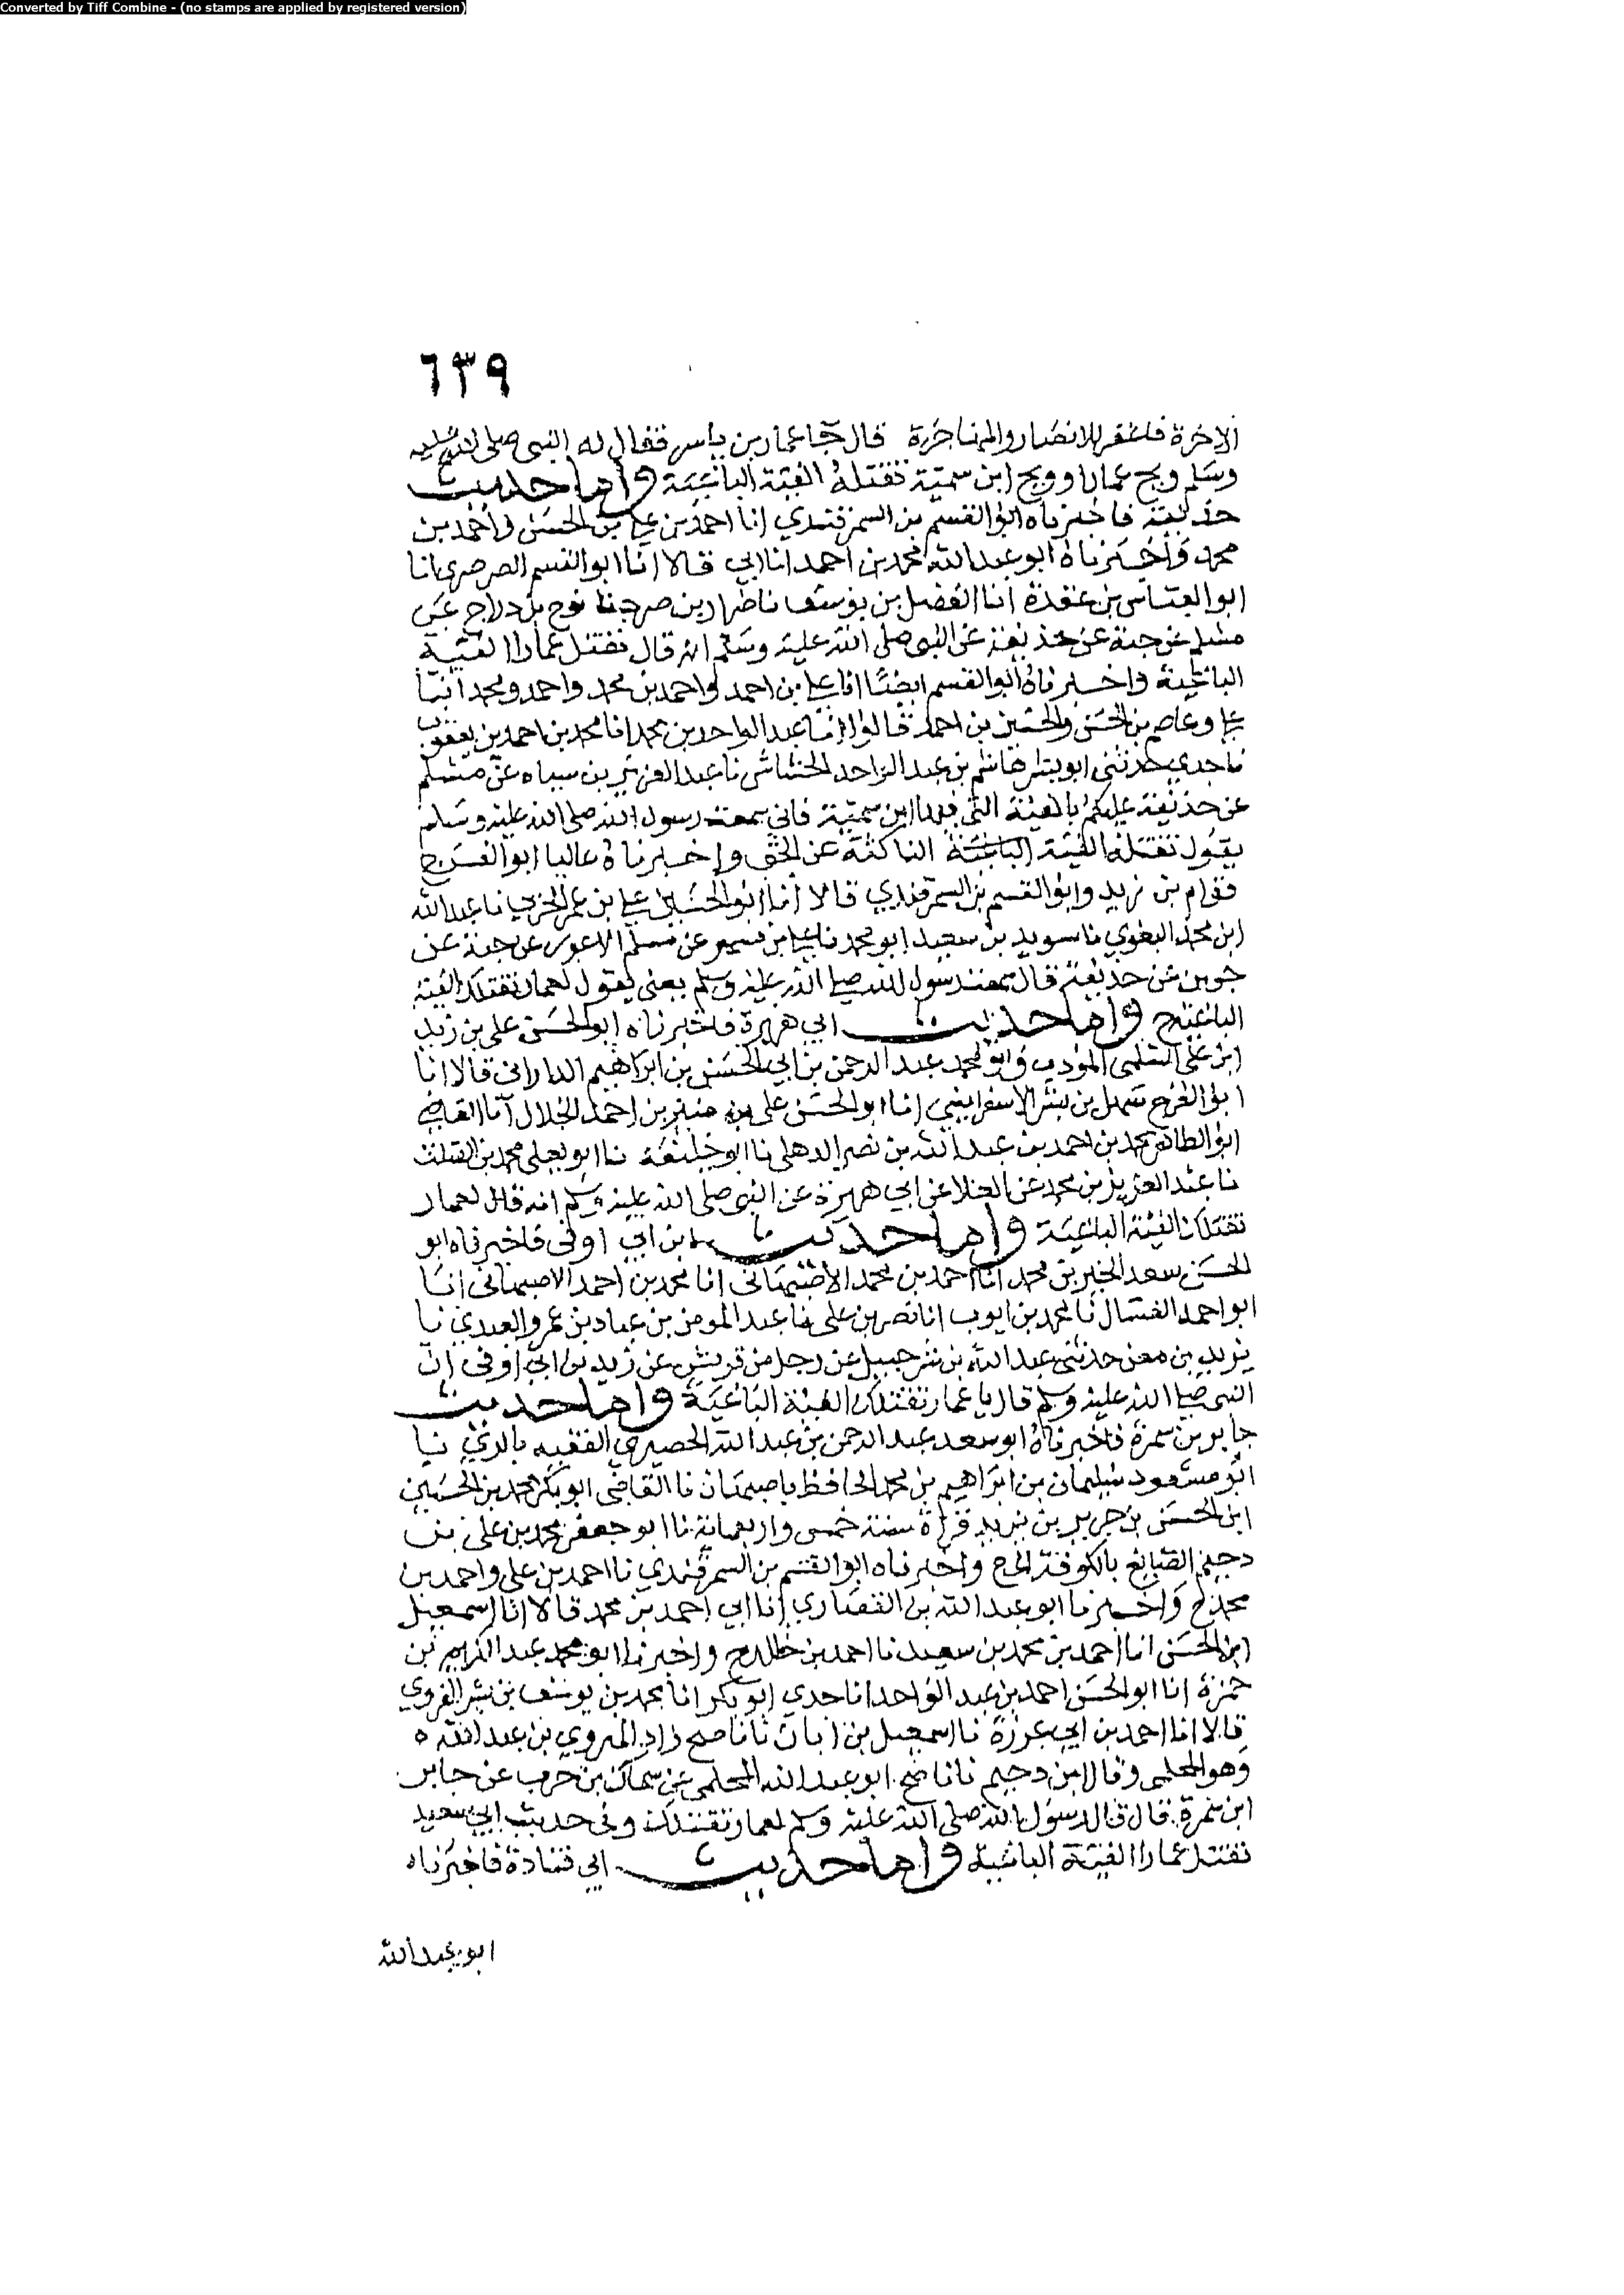 Converted by Tiff Combine - (no stamps are applied by registered version)
٦٣٩
الاخرة فاغفر للانصار والمهاجرة قال جا عمار بن ياسر فقال له النبى صلى الله عليه
وسلم ويح عمارا وويح ابن سمية تقتله الفية الباغية واما حديث
حذيفة فاخبرناه ابو القسم بن السمرقندي انا احمد بن علي بن الحسن واحمد بن
محمد واخبرناه ابو عبد الله محمد بن احمد انا ابي قالا انا ابو القسم الصرصري انا
ابو العباس بن عقدة انا الفضل بن يوسف نا ضرار بن صرد نا نوح بن دراج عن
مسلم عن حبة عن حذيفة عن النبى صلى الله عليه وسلم انه قال تقتل عمارا الفية
الباغية واخبرناه ابو القسم ايضا انا علي بن احمد واحمد بن محمد واحمد ومحمد انبا
علي وعاصم بن الحسن والحسين بن احمد قالوا انا عبد الواحد بن محمد انا محمد بن احمد بن يعقوب
نا جدي حدثنى ابو بشر هاشم بن عبد الواحد الخشاش نا عبد العزيز بن سياه عن مسلم
عن حذيفة عليكم بالفية التى فيها ابن سمية فاني سمعت رسول الله صلى الله عليه وسلم
يقول تقتله الفية الباغية الناكثة عن الحق واخبرناه عاليا ابو الفرج
قوام بن زيد وابو القسم بن السمرقندي قالا انا ابو الحسين علي بن عمر الحزبي نا عبد الله
ابن محمد البغوي نا سويد بن سعيد ابو محمد نا علي بن مسهر عن مسلم الاعور عن حبة عن
جوين عن حذيفة قال سمعت رسول الله صلى الله عليه وسلم يعنى يقول لعمار تقتلك الفية
الباغية واما حديث ابي هريرة فاخبرناه ابو الحسن على بن زيد
ابن على السلمى المؤدب وابو محمد عبد الرحمن بن ابي الحسن بن ابراهيم الدارانى قالا انا
ابو الفرج سهل بن بشر الاسفراينى انا ابو الحسن على بن منير بن احمد الخلال انا القاضي
ابو الطاهر محمد بن احمد بن عبد الله بن نصر الدهلى نا ابو خليفة نا ابو يعلى محمد بن الصلت
نا عبد العزيز بن محمد عن العلا عن ابي هريرة عن النبى صلى الله عليه وسلم انه قال لعمار
تقتلك الفية الباغية واما حديث ابن ابي اوفى فاخبرناه ابو
الحسن سعد الخير بن محمد انا احمد بن محمد الاصبهانى انا محمد بن احمد الاصبهانى انا
ابو احمد العسال نا محمد بن ايوب انا نصر بن على نا عبد المومن بن عباد بن عمرو العبدي نا
يزيد بن معن حدثنى عبد الله بن شرحبيل عن رجل من قريش عن زيد بن ابي اوفى ان
النبى صلى الله عليه وسلم قال يا عمار تقتلك الفية الباغية واما حديث
جابر بن سمرة فاخبرناه ابو سعد عبد الرحمن بن عبد الله الحصيري الفقيه بالري نا
ابو مسعود سليمان بن ابراهيم بن محمد الحافظ باصبهان نا القاضى ابو بكر محمد بن الحسين
ابن الحسن بن جرير بن يزيد قراة سنة خمس واربعماية نا ابو جعفر محمد بن على بن
دحيم الصايغ بالكوفة ح واخبرناه ابو القسم بن السمرقندي نا احمد بن على واحمد بن
محمد ح واخبرنا ابو عبد الله بن القصاري انا ابي احمد بن محمد قالا انا اسمعيل
ابن الحسن انا احمد بن محمد بن سعيد نا احمد بن خالد ح واخبرنا ابو محمد عبد الكريم بن
حمزة انا ابو الحسن احمد بن عبد الواحد انا جدي ابو بكر انا محمد بن يوسف بن بشر الهروي
قالا انا احمد بن ابي عرزة نا اسمعيل بن ابان نا ناصح زاد الهروي بن عبد الله
وهو المحلمى وقال ابن دحيم نا ناصح ابو عبد الله المحلمى عن سماك بن حرب عن جابر
ابن سمرة قال قال رسول الله صلى الله عليه وسلم لعمار تقتلك وفى حديث ابي سعيد
تقتل عمارا الفية الباغية واما حديث ابي قتادة فاخبرناه
ابو عبد الله